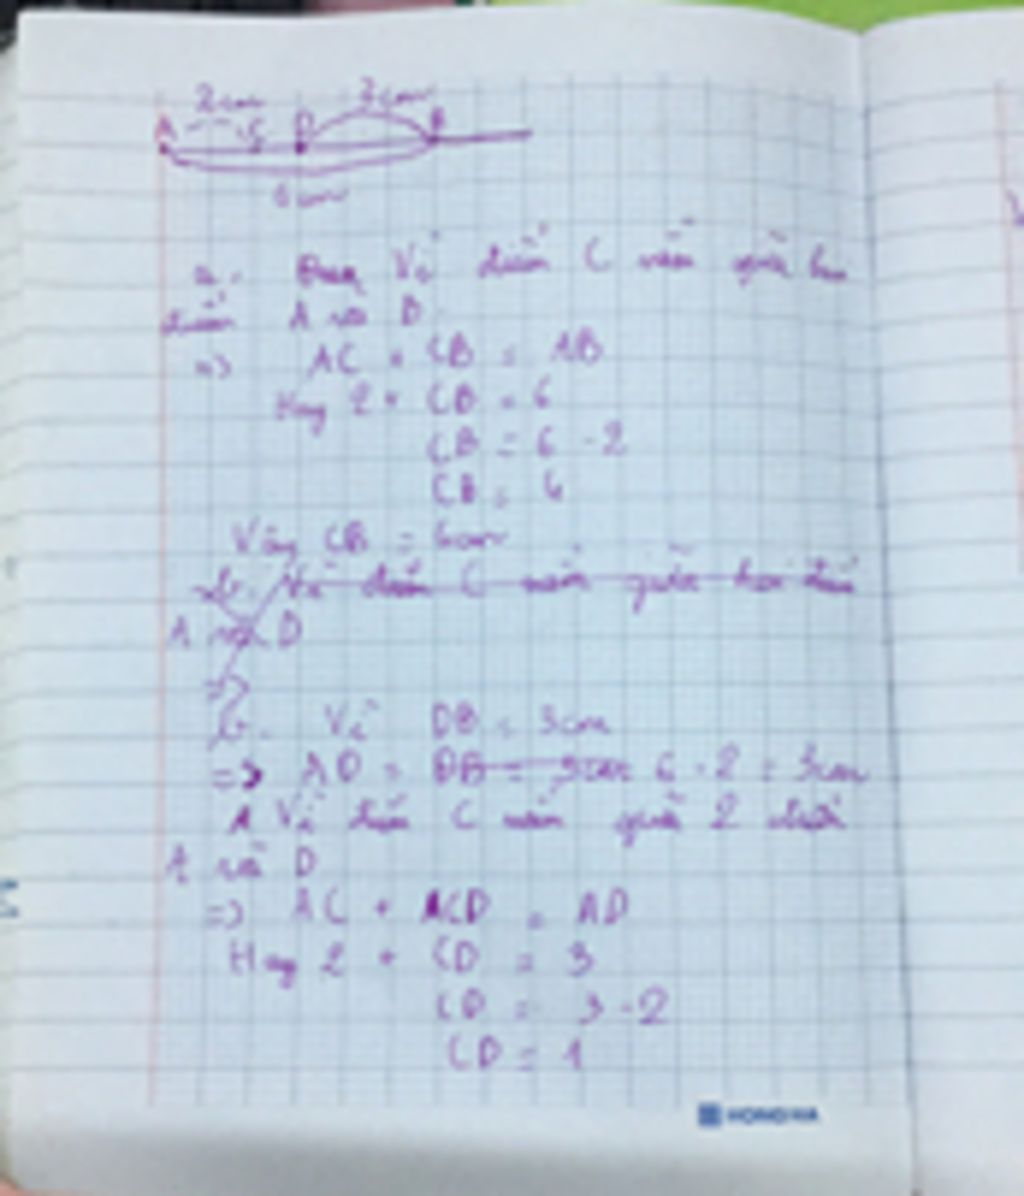 2cm 3cm
A C D B
6cm
a. Vì điểm C nằm giữa hai
điểm A và B
=> AC + CB = AB
Hay 2 + CB = 6
CB = 6 - 2
CB = 4
Vậy CB = 4cm
b. Vì điểm C nằm giữa hai điểm
A và D
=>
b. Vì DB = 3cm
=> AD = DB = 3cm 6 - 2 = 3cm
Vì điểm C nằm giữa 2 điểm
A và D
=> AC + CD = AD
Hay 2 + CD = 3
CD = 3 - 2
CD = 1
HONG HA